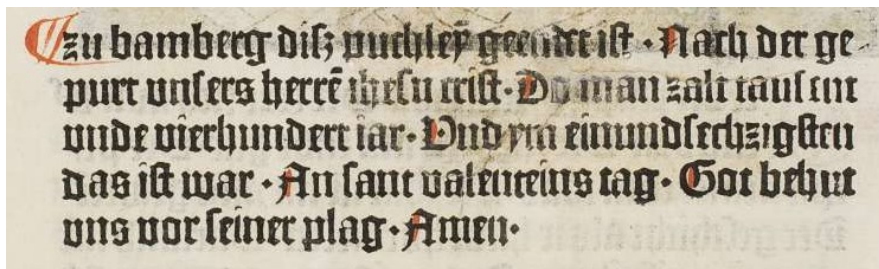 zu bamberg diſz puchleÿ geendet iſt · Nach der ge
purt vnſers herrē iheſu criſt · Do man zalt tauſent
vnde vierhundert iar · Vnd ym einundſechzigſten
das iſt war · An ſant valenteins tag · Got behut
vns vor ſeiner plag · Amen ·